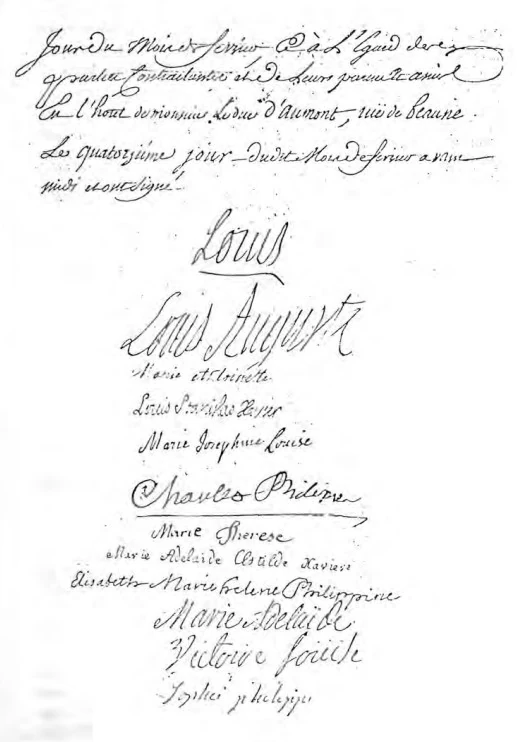 Jour du Mois de fevrier Et à L'Egard des
parties Contractantes et de Leurs parents et amis
En l'hotel de monsieur Le duc d'Aumont, rüe de beaune
Les quatorziéme jour dudit Mois de fevrier avant
midi et ont signé
Louis
Louis Auguste
Marie Antoinette
Louis Stanislas Xavier
Marie Josephine Louise
Charles Philippe
Marie Therese
Marie Adelaide Clotilde Xaviere
Elisabeth Marie helene Philippine
Marie Adelaïde
Victoire Loüise
Sophie philippe